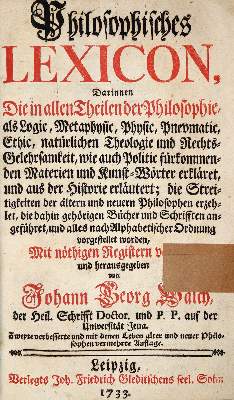 Philosophisches
LEXICON,
Darinnen
Die in allen Theilen der Philosophie,
als Logic, Metaphysic, Physic, Pnevmatic,
Ethic, natürlichen Theologie und Rechts-
Gelehrsamkeit, wie auch Politic fürkommen-
den Materien und Kunst-Wörter erkläret,
und aus der Historie erläutert; die Strei-
tigkeiten der ältern und neuern Philosophen erzeh-
let, die dahin gehörigen Bücher und Schrifften an-
geführet, und alles nach Alphabetischer Ordnung
vorgestellet worden,
Mit nöthigen Registern
und herausgegeben
von
Johann Georg Walch,
der Heil. Schrifft Doctor, und P. P. auf der
Universität Jena.
Zweyte verbesserte und mit denen Leben alter und neuer Philo-
sophen vermehrte Auflage.
Leipzig,
Verlegts Joh. Friedrich Gleditschens seel. Sohn
1733.